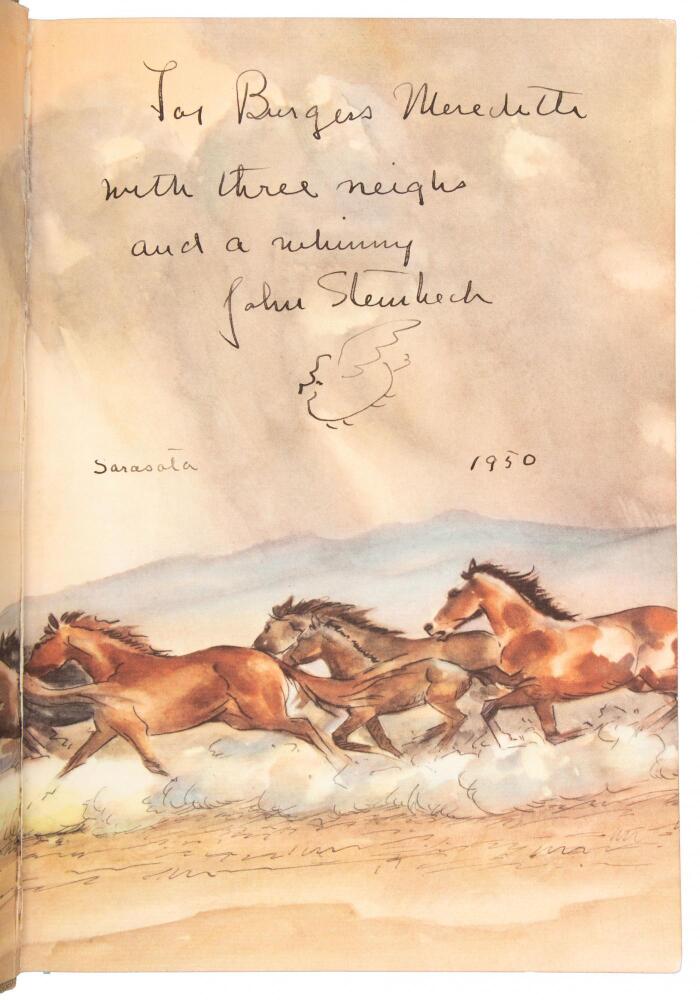 For Burgess Meredith
with three neighs
and a whinny
John Steinbeck
Sarasota 1950